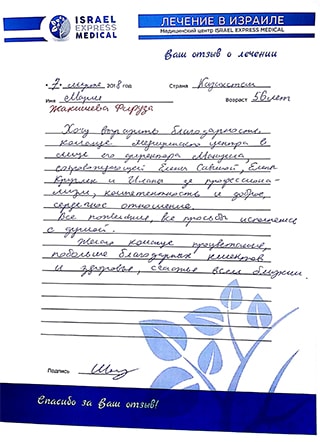 ISRAEL
EXPRESS
MEDICAL
ЛЕЧЕНИЕ В ИЗРАИЛЕ
Медицинский центр ISRAEL EXPRESS MEDICAL
Ваш отзыв о лечении
7 2018 год Страна Казахстан
Имя Мария Возраст 56 лет
Жакишева Фируза
Хочу выразить благодарность
команде медицинского центра в
лице его директора
сопровождающей Елены Савиной, Елены
и за профессиона-
лизм, компетентность и доброе,
сердечное отношение.
Все пожелания, все просьбы исполняются
с душой.
Желаю команде процветания,
побольше благодарных клиентов
и здоровья, счастья всем близким.
Подпись
Спасибо за Ваш отзыв!